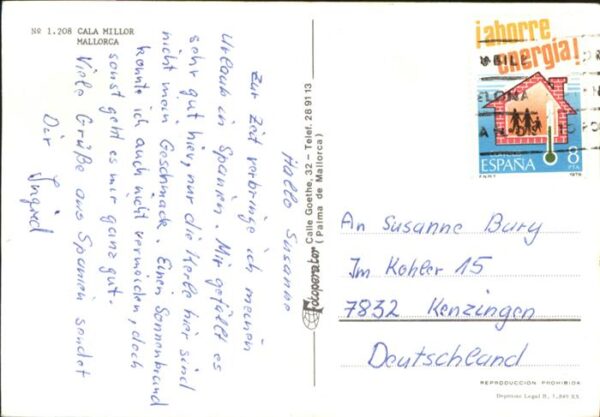 Nº 1.208 CALA MILLOR
MALLORCA
Hallo Susanne
Zur Zeit verbringe ich meinen
Urlaub in Spanien. Mir gefällt es
sehr gut hier, nur die Kerle hier sind
nicht mein Geschmack. Einen Sonnenbrand
konnte ich auch nicht vermeiden, doch
sonst geht es mir ganz gut.
Viele Grüße aus Spanien sendet
Dir Ingrid
Fotoperator Calle Goethe, 32 – Telef. 28 91 13
(Palma de Mallorca)
¡ahorre
energía!
ESPAÑA 8 PTA
1979
An Susanne Bury
Im Kohler 15
7832 Kenzingen
Deutschland
REPRODUCCION PROHIBIDA